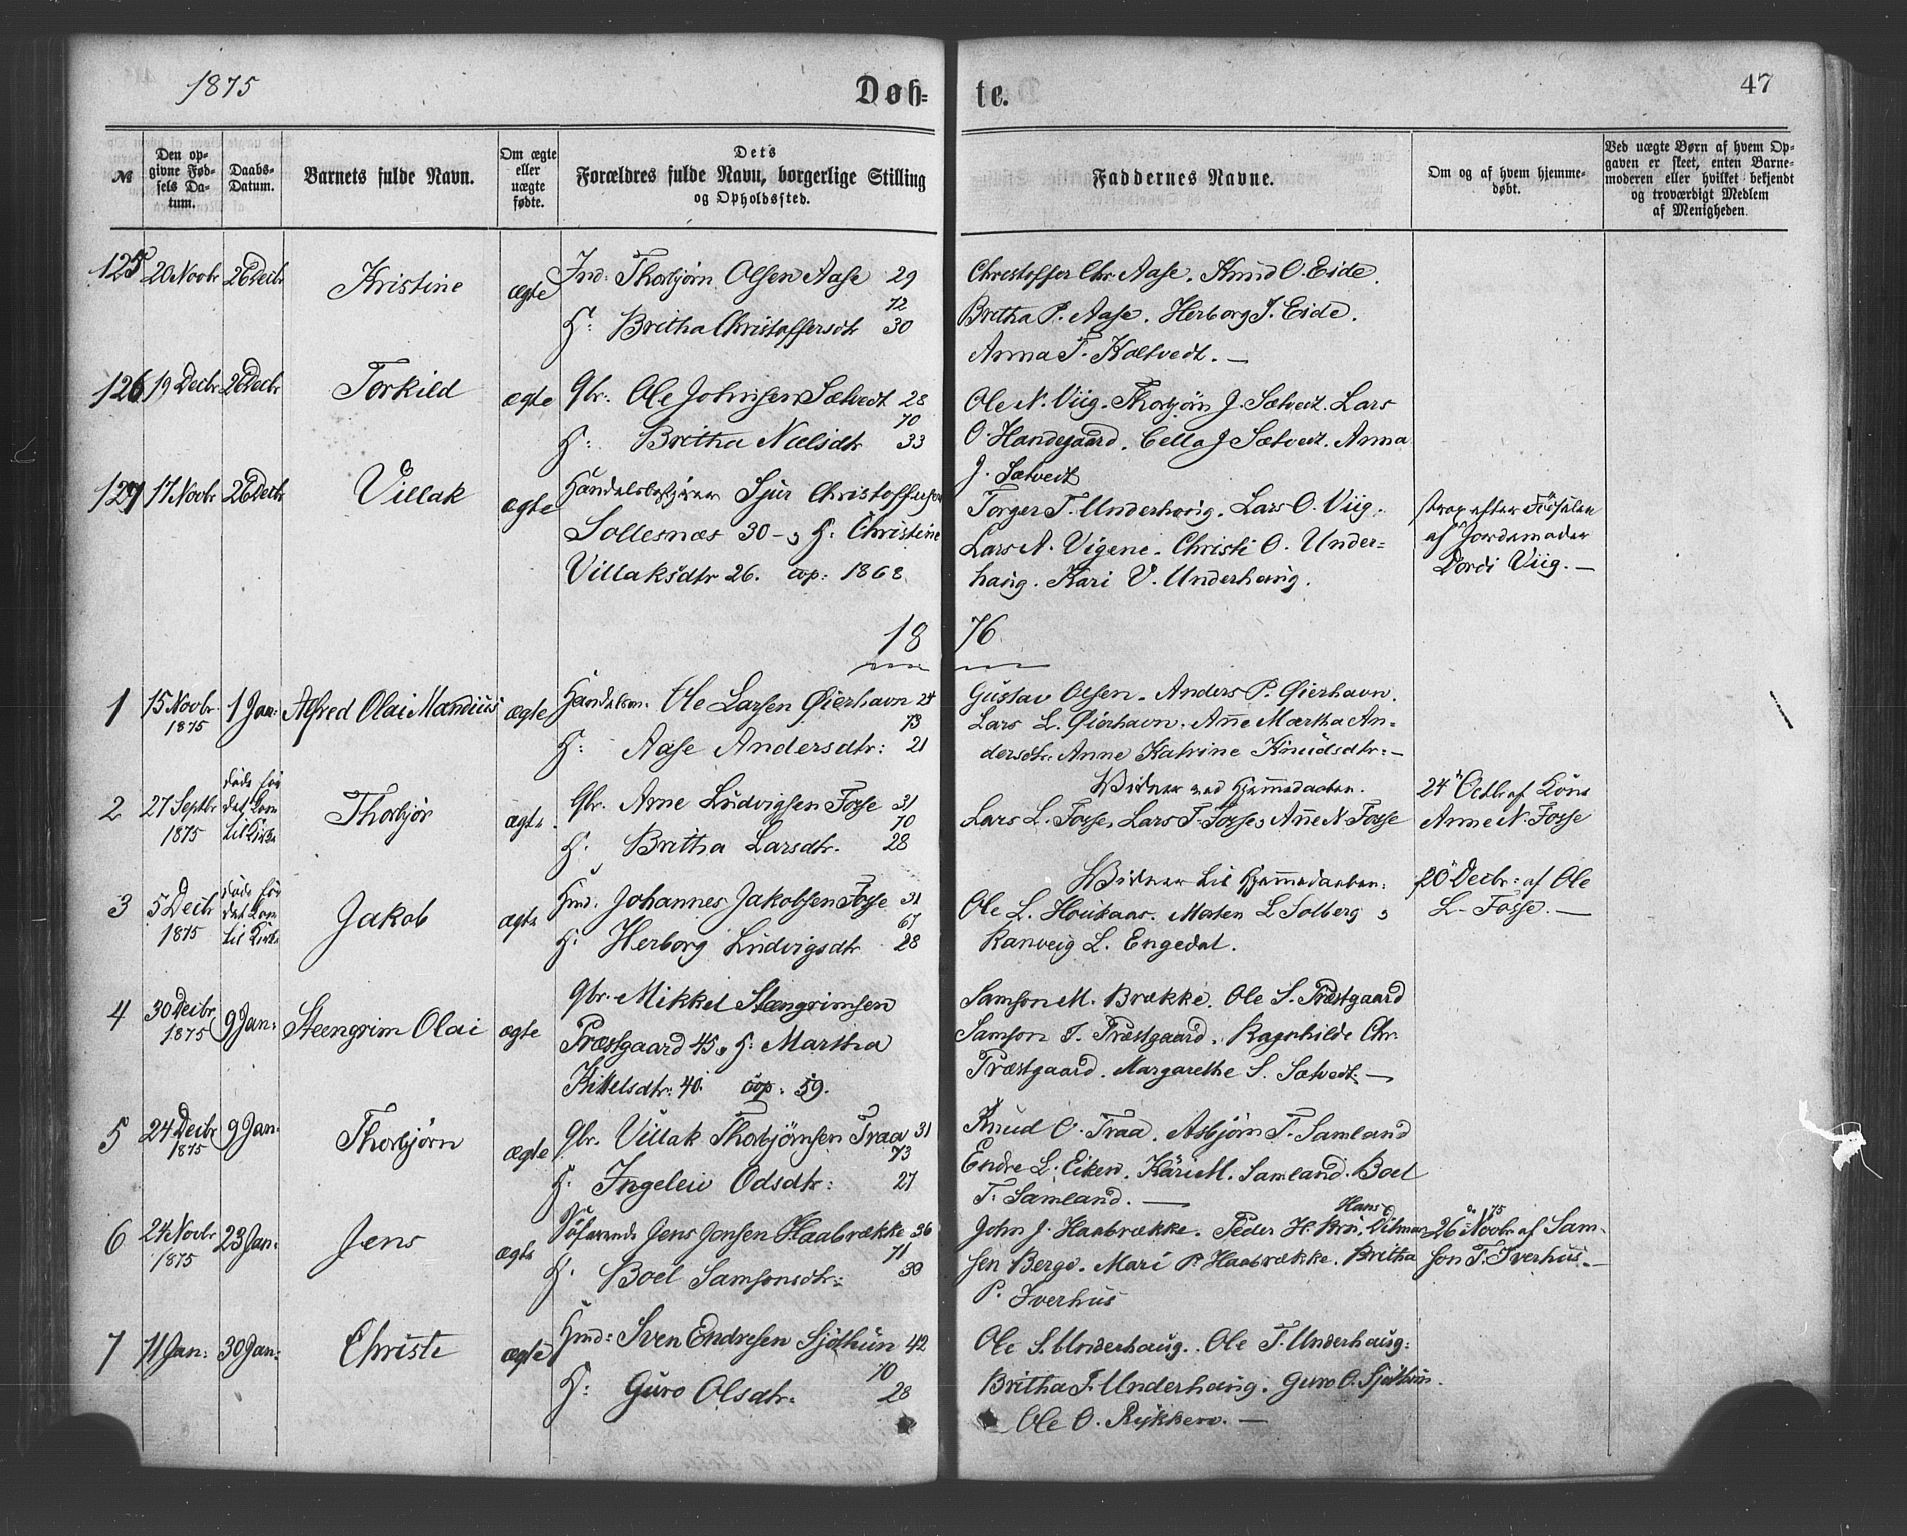 1875
Døb= te. 47
№
Den op-
givne Fød-
sels Da-
tum.
Daabs-
Datum.
Barnets fulde Navn.
Om ægte
eller
uægte
fødte.
Dets
Forældres fulde Navn, borgerlige Stilling
og Opholdssted.
Faddernes Navne.
Om og af hvem hjemme-
døbt.
Ved uægte Børn af hvem Op-
gaven er skeet, enten Barne-
moderen eller hvilket bekjendt
og troværdigt Medlem
af Menigheden.
125 20 Novbr 26 Decbr Kristine ægte Ind: Thorbjørn Olsen Aase 29
72
H: Britha Christoffersdtr 30
Christoffer Chr. Aase. Knud O. Eide.
Britha P. Aase. Herborg J. Eide.
Anna T. Kaltvedt. —
126 19 Decbr 26 Decbr Torkild ægte Gbr. Ole Johnsen Sætvedt 28
70
H: Britha Nilsdtr 33
Ole N. Viig. Thorbjørn J. Sætvedt. Lars
O. Handegaard. Cella J. Sætvedt. Anna
J. Sætvedt
127 17 Novbr 26 Decbr Villak ægte Handelsbestyrer Sjur Christoffersen
Sollesnæs 30 - , H: Christine
Villaksdtr 26. cop: 1868
Torger T. Underhaug. Lars O. Viig.
Lars A. Vigene. Christi O. Under=
haug. Kari V. Underhaug.
strax efter Fødselen
af Jordemoder
Dordi Viig. —
18 76
1 15 Novbr 1 Jan: Alfred Olai Mandius ægte Handelsm. Ole Larsen Øierhavn 24
1875 73
H: Aase Andersdtr: 21
Gustav Olsen. Anders P. Øierhavn.
Lars L. Øierhavn. Anne Martha An-
dersdtr. Anne Katrine Knudsdtr: —
2 27 Septbr døde før Thorbjør ægte. Gbr. Arne Ludvigsen Fosse 31
1875 det kom 70
til Kirke H. Britha Larsdtr. 28
Vidner ved Hjemmedaaben.
Lars L. Fosse, Lars T. Fosse, Anne N. Fosse
24 Octb. af Kone
Anne N. Fosse
3 5 Decbr døde før Jakob ægte Hmd: Johannes Jakobsen Fosse 31
1875 det kom 67
til Kirke H: Herborg Ludvigsdtr 28
Vidner til Hjemmedaaben:
Ole L. Houkaas. Maten L. Solberg ,
Ranveig L. Engedal.
20 Decbr: af Ole
L. Fosse. —
4 30 Decbr 9 Jan: Steengrim Olai ægte Gbr. Mikkel Steengrimsen
1875
Præstgaard 45, H: Martha
Kittelsdtr: 40. cop: 59.
Samson M. Brække. Ole S. Præstgaard
Samson T. Præstgaard. Ragnhilde Chr.
Præstgaard. Margarethe S. Sætvedt. —
5 24 Decbr 9 Jan: Thorbjørn ægte Gbr. Villak Thorbjørnsen Traa 31
1875 73
H. Ingeleiv Odsdtr: 27
Knud O. Traa. Asbjørn T. Samland
Endre L. Eiken. Kari M. Samland. Boel
T. Samland. —
6 24 Novbr 23 Jan: Jens ægte Søfarende Jens Jonsen Haabrække 36
1875 71
H. Boel Samsonsdtr: 30
Hans
John J. Haabrække. Peder H. Ditman
sen Berge. Mari P. Haabrække. Britha
P. Iverhus
75
26 Novbr af Sam-
son T. Iverhus. —
7 11 Jan: 30 Jan: Christe ægte Hmd: Sven Endresen Sjøthun 42
70
H: Guro Olsdtr. 28
Ole S. Underhaug. Ole T. Underhaug:
Britha T. Underhaug. Guro O. Sjøthun.
Ole O. Rykken. —